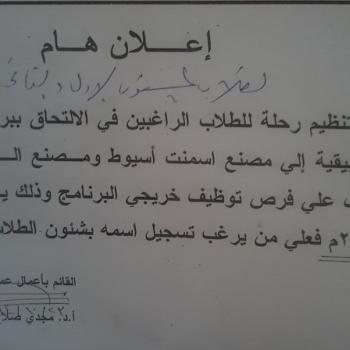 إعلان هام
لطلاب المستوى الأول والثاني
تنظيم رحلة للطلاب الراغبين في الالتحاق ببر
بيقية إلي مصنع اسمنت أسيوط ومصنع الـ
علي فرص توظيف خريجي البرنامج وذلك يـ
م فعلي من يرغب تسجيل اسمه بشئون الطلا
القائم بأعمال عمـ
ا.د. مجدي صلا